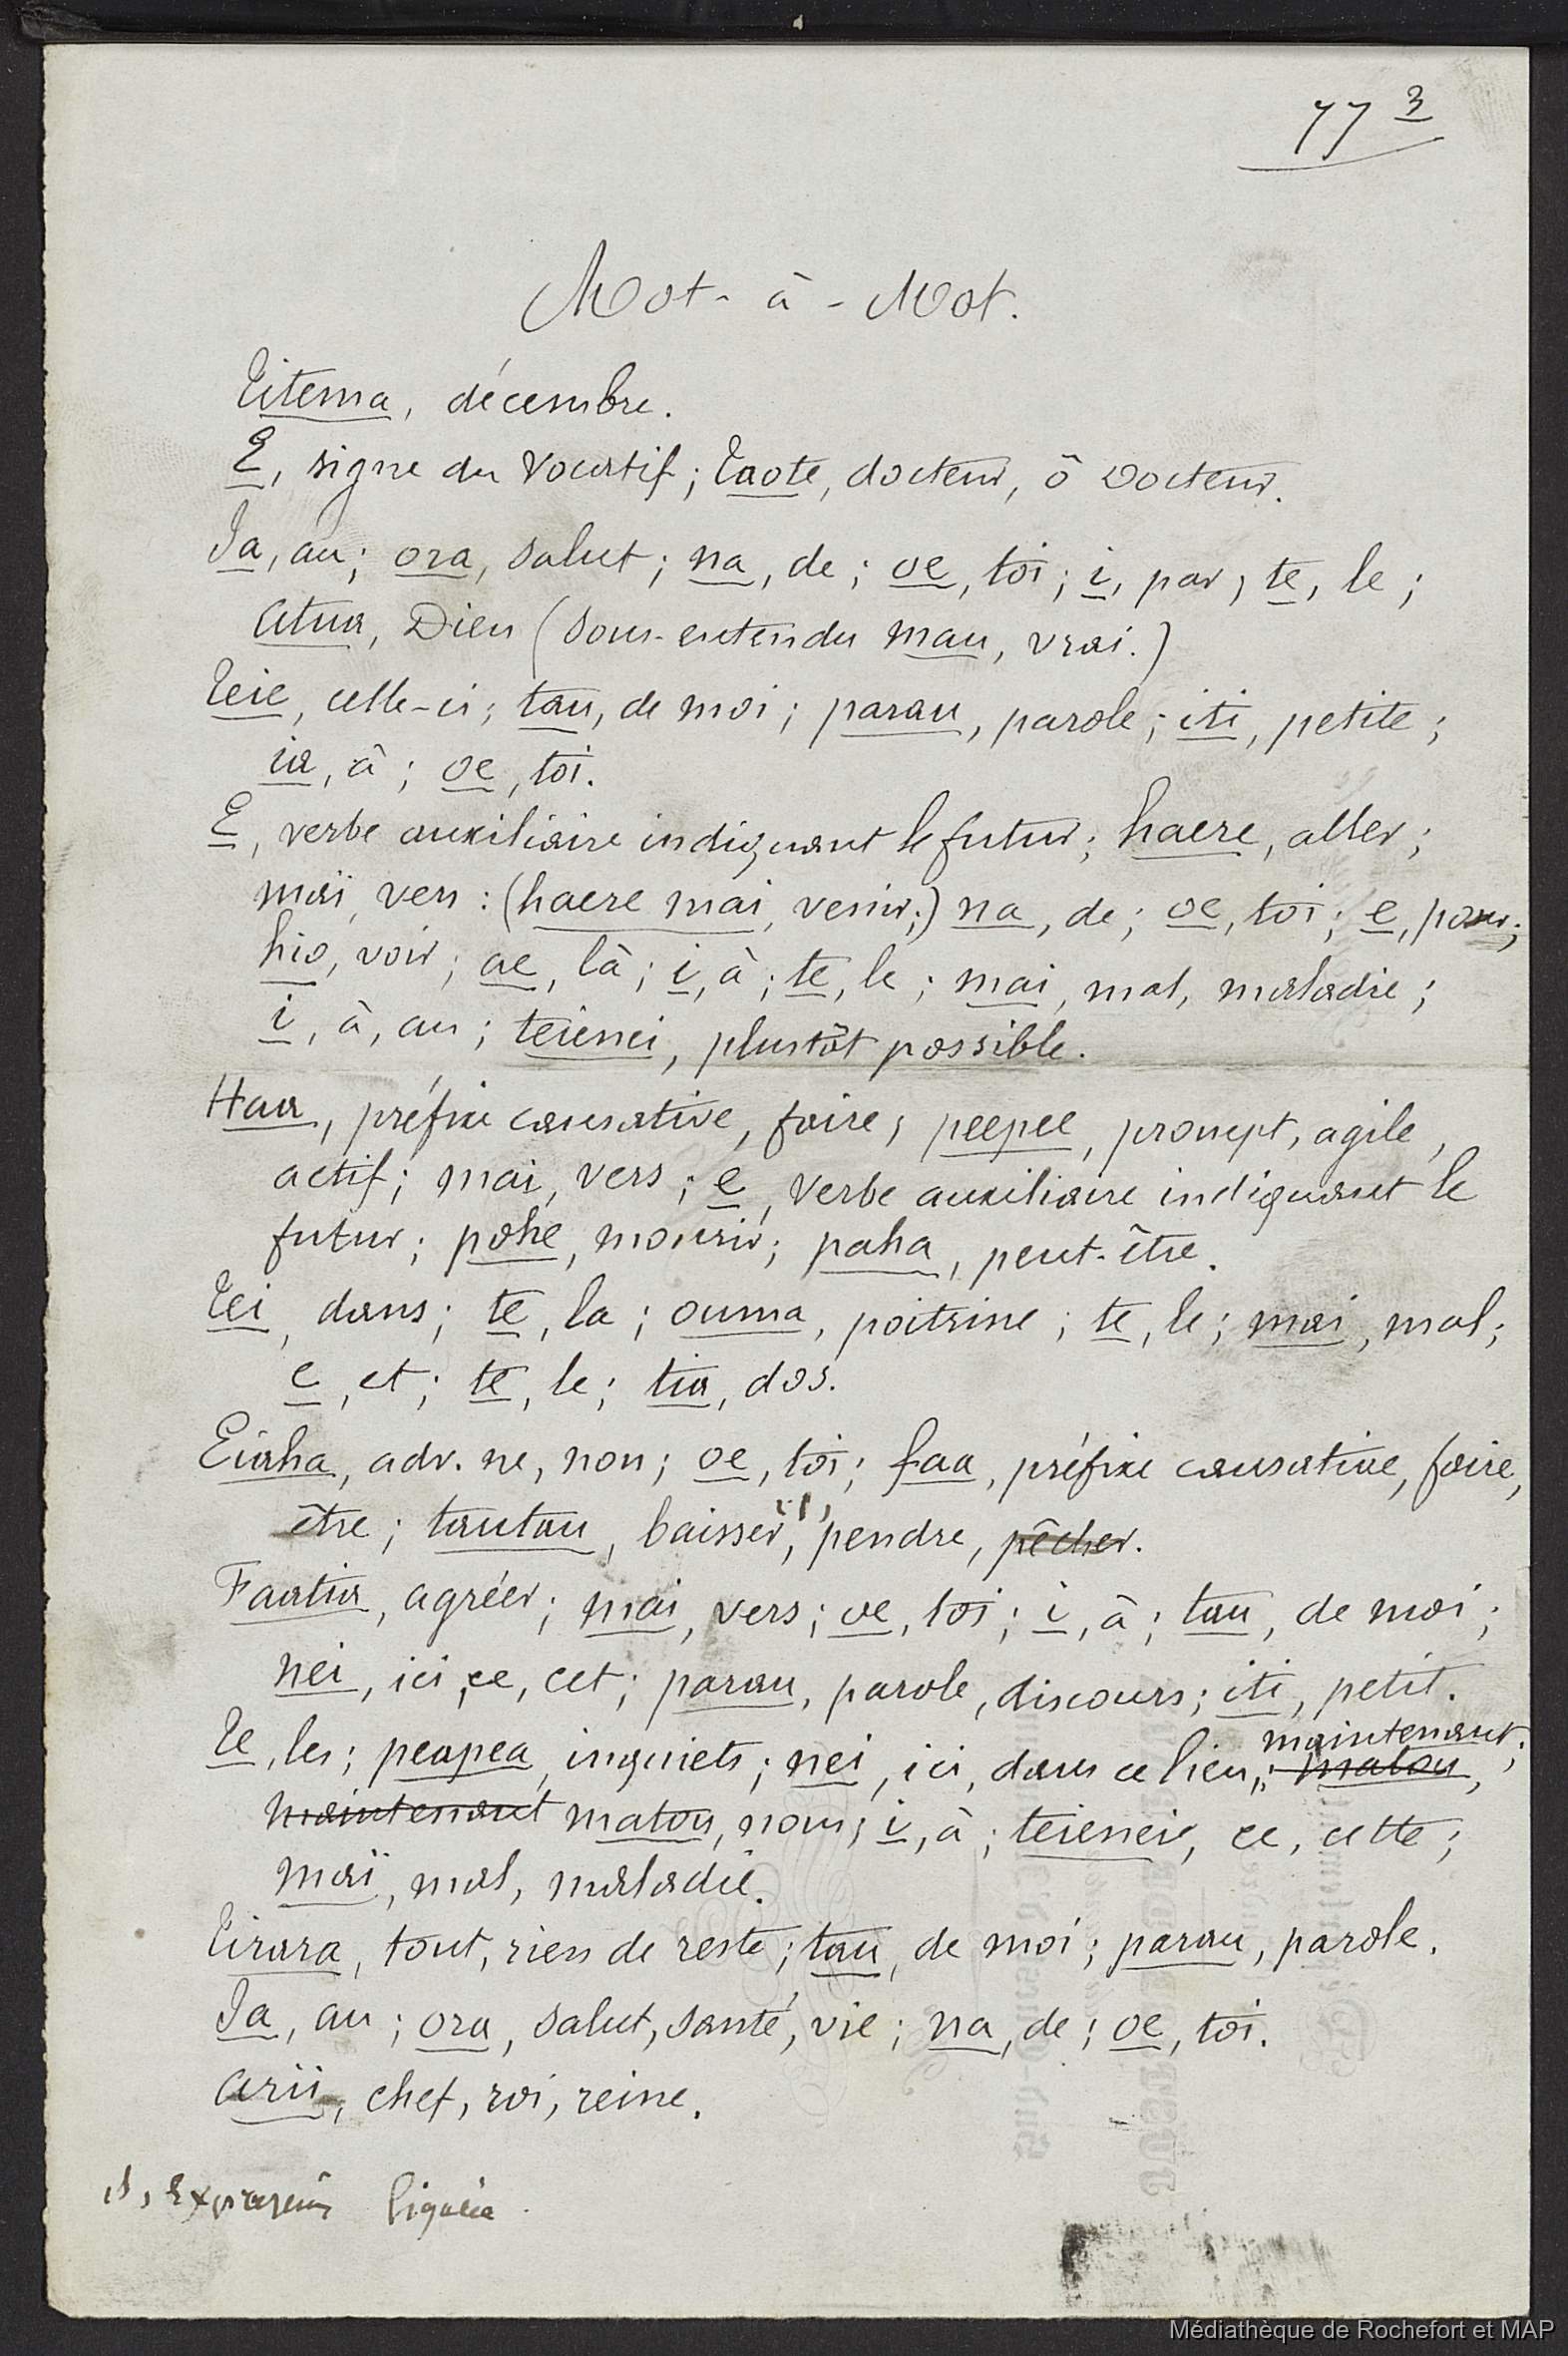 77 3
Mot-à-Mot.
Titema, décembre.
E, signe du vocatif; Taote, docteur, ô Docteur.
Ia, au; ora, salut; na, de; oe, toi; i, par, te, le;
Atua, Dieu (sous-entendu mau, vrai.)
Teie, celle-ci; tau, de moi; parau, parole; iti, petite;
ia, à; oe, toi.
E, verbe auxiliaire indiquant le futur; haere, aller;
maï, vers: (haere mai, venir;) na, de; oe, toi; e, pour;
hio, voir; ae, là; i, à; te, le; mai, mal, maladie;
i, à, au; teienei, plustôt possible.
Haa, préfixe causative, faire, peepee, prompt, agile,
actif; mai, vers; e, verbe auxiliaire indiquant le
futur; pohe, mourir; paha, peut-être.
Tei, dans; te, la; ouma, poitrine; te, le; mai, mal;
e, et; te, le; tia, dos.
Eiaha, adv. ne, non; oe, toi; faa, préfixe causative, faire,
être; tautau, baisser, (1), pendre, pêcher.
Faatia, agréer; mai, vers; oe, toi; i, à; tau, de moi;
nei, ici, ce, cet; parau, parole, discours; iti, petit.
Te, les; peapea, inquiets; nei, ici, dans ce lieu, maintenant; matou,
maintenant matou, nous, i, à; teienei, ce, cette;
maï, mal, maladie.
Tirara, tout, rien de reste; tau, de moi; parau, parole.
Ia, au; ora, salut, santé, vie; na, de; oe, toi.
Arii, chef, roi, reine.
(1), Expression figurée.
Médiathèque de Rochefort et MAP